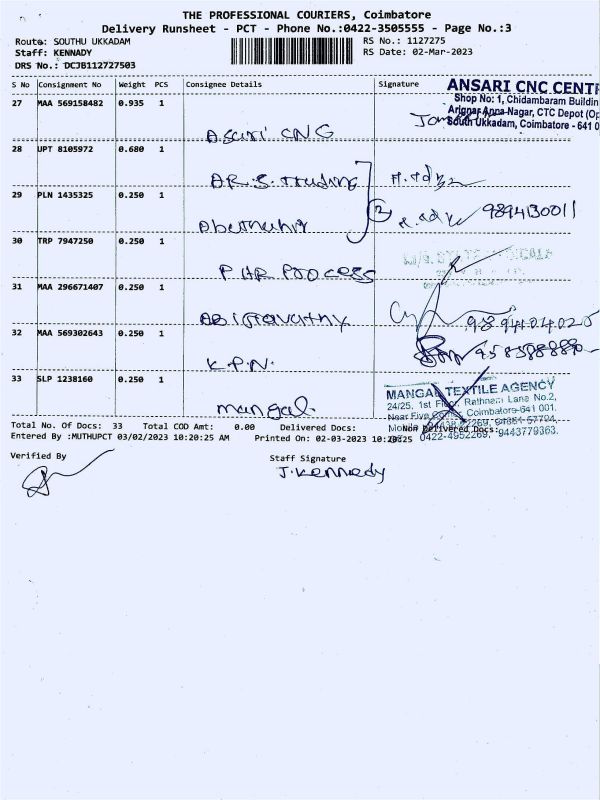 THE PROFESSIONAL COURIERS, Coimbatore
Delivery Runsheet - PCT - Phone No.:0422-3505555 - Page No.:3
Route: SOUTHU UKKADAM RS No.: 1127275
Staff: KENNADY RS Date: 02-Mar-2023
DRS No.: DCJB112727503
S No Consignment No Weight PCS Consignee Details Signature
ANSARI CNC CENTR
Shop No: 1, Chidambaram Buildin
Arignar Anna Nagar, CTC Depot (Op
South Ukkadam, Coimbatore - 641 0
27 MAA 569158482 0.935 1
Asari CNG
28 UPT 8105972 0.680 1
AR.S. Trading
29 PLN 1435325 0.250 1
2 9894130011
30 TRP 7947250 0.250 1
P HR Process
31 MAA 296671407 0.250 1
9894404025
32 MAA 569302643 0.250 1
K.P.N.
33 SLP 1238160 0.250 1
mangal
MANGAL TEXTILE AGENCY
24/25, 1st Floor, Rathnam Lane No.2,
Coimbatore-641 001.
0422-4952269, 9443779363.
Total No. Of Docs: 33 Total COD Amt: 0.00 Delivered Docs: Non Delivered Docs:
Entered By :MUTHUPCT 03/02/2023 10:20:25 AM Printed On: 02-03-2023 10:20:25
Verified By Staff Signature
J. Kennedy